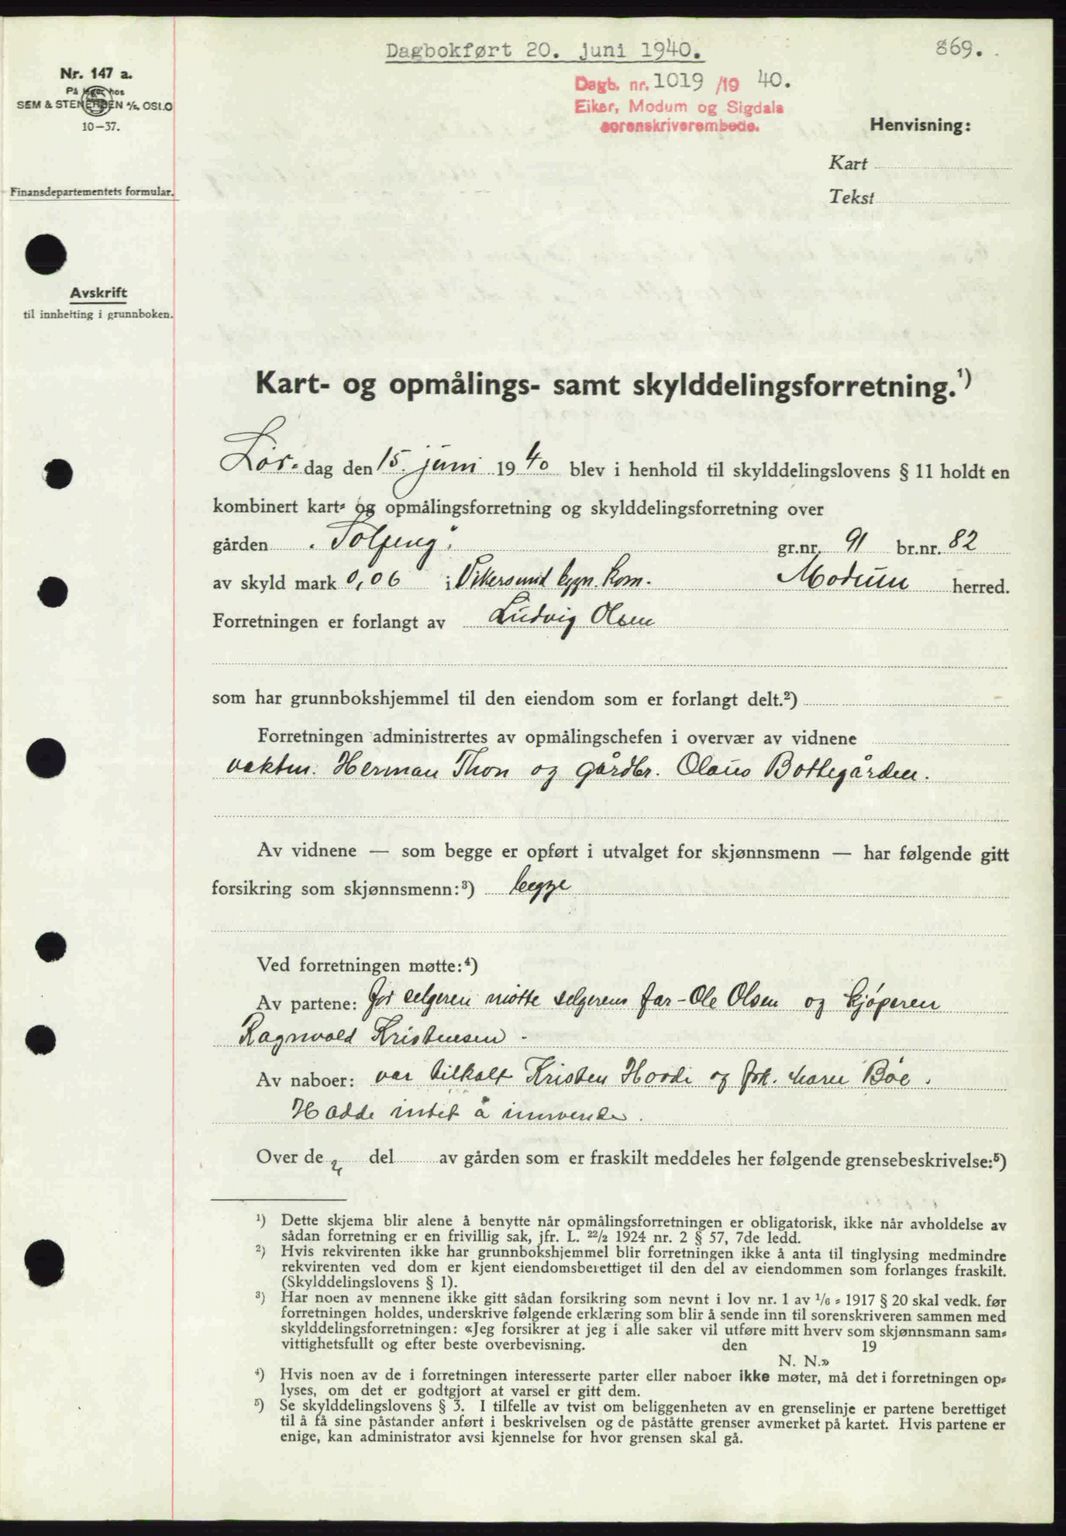 Dagbokført 20. juni 1940.
869.
Dagb. nr. 1019 /19 40.
Eiker, Modum og Sigdals
sorenskriverembede.
Nr. 147 a.
På lager hos
SEM & STENERSEN A/S, OSLO
10-37.
Henvisning:
Kart
Tekst
Finansdepartementets formular.
Avskrift
til innhefting i grunnboken.
Kart- og opmålings- samt skylddelingsforretning.¹)
Lør- dag den 15. juni 19 40 blev i henhold til skylddelingslovens § 11 holdt en
kombinert kart- og opmålingsforretning og skylddelingsforretning over
gården „Solfeng". gr.nr. 91 br.nr. 82
av skyld mark 0,06 i Vikersund bygn. kom. Modum herred.
Forretningen er forlangt av Ludvig Olsen
som har grunnbokshjemmel til den eiendom som er forlangt delt.²)
Forretningen administrertes av opmålingschefen i overvær av vidnene
vaktm. Herman Thon og gårdbr. Olaus Bottegården.
Av vidnene — som begge er opført i utvalget for skjønnsmenn — har følgende gitt
forsikring som skjønnsmenn:³) begge
Ved forretningen møtte:⁴)
Av partene: for selgeren møtte selgerens far - Ole Olsen og kjøperen
Ragnvald Kristensen -
Av naboer: var tilkalt Kristen Hovde og frk. Maren Bøe.
Hadde intet å innvende.
Over de 2 del av gården som er fraskilt meddeles her følgende grensebeskrivelse:⁵)
¹) Dette skjema blir alene å benytte når opmålingsforretningen er obligatorisk, ikke når avholdelse av
sådan forretning er en frivillig sak, jfr. L. 22/2 1924 nr. 2 § 57, 7de ledd.
²) Hvis rekvirenten ikke har grunnbokshjemmel blir forretningen ikke å anta til tinglysing medmindre
rekvirenten ved dom er kjent eiendomsberettiget til den del av eiendommen som forlanges fraskilt.
(Skylddelingslovens § 1).
³) Har noen av mennene ikke gitt sådan forsikring som nevnt i lov nr. 1 av 1/6 - 1917 § 20 skal vedk. før
forretningen holdes, underskrive følgende erklæring som blir å sende inn til sorenskriveren sammen med
skylddelingsforretningen: «Jeg forsikrer at jeg i alle saker vil utføre mitt hverv som skjønnsmann sam-
vittighetsfullt og efter beste overbevisning. den 19
N. N.»
⁴) Hvis noen av de i forretningen interesserte parter eller naboer ikke møter, må det i forretningen op-
lyses, om det er godtgjort at varsel er gitt dem.
⁵) Se skylddelingslovens § 3. I tilfelle av tvist om beliggenheten av en grenselinje er partene berettiget
til å få sine påstander anført i beskrivelsen og de påståtte grenser avmerket på kartet. Hvis partene er
enige, kan administrator avsi kjennelse for hvor grensen skal gå.